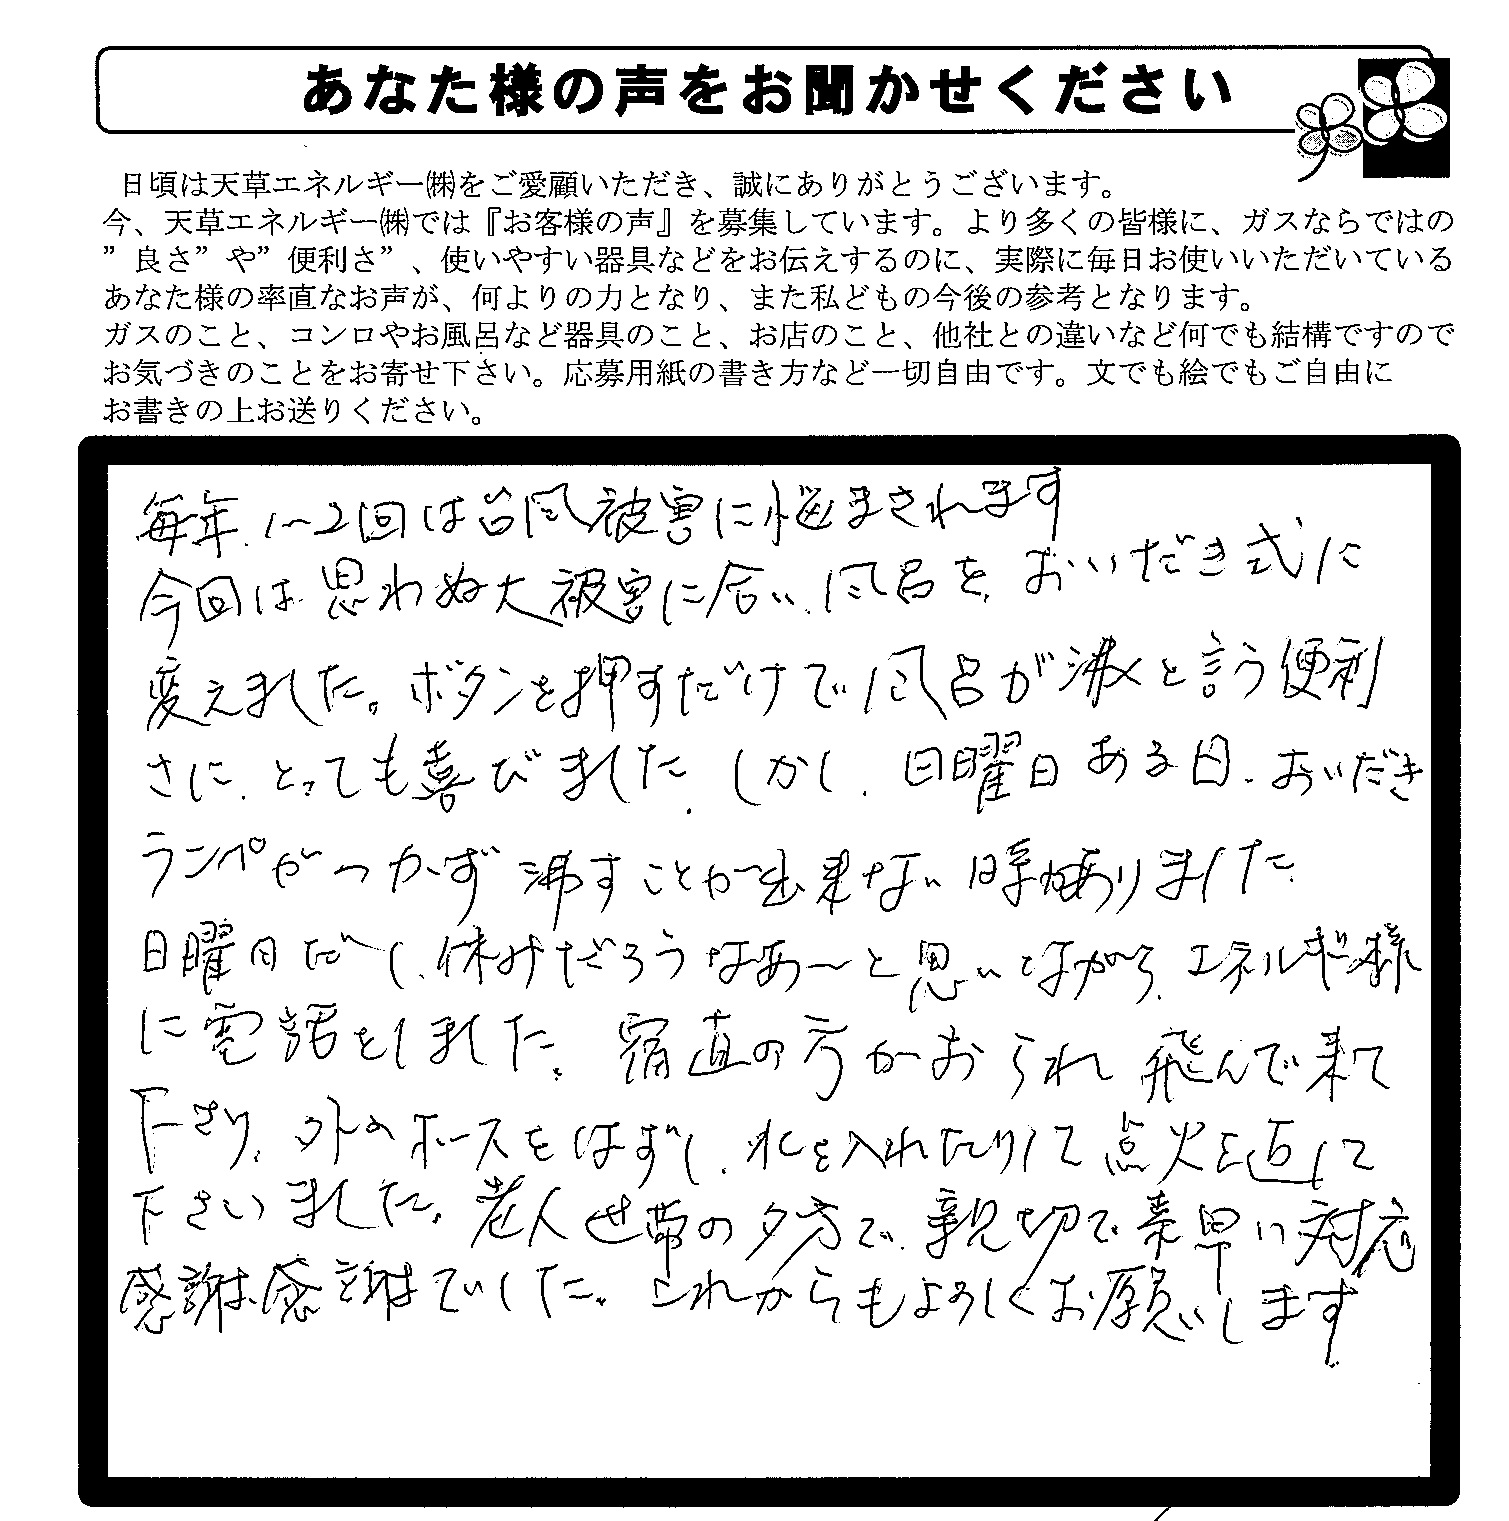 あなた様の声をお聞かせください
日頃は天草エネルギー㈱をご愛顧いただき、誠にありがとうございます。
今、天草エネルギー㈱では『お客様の声』を募集しています。より多くの皆様に、ガスならではの
”良さ”や”便利さ”、使いやすい器具などをお伝えするのに、実際に毎日お使いいただいている
あなた様の率直なお声が、何よりの力となり、また私どもの今後の参考となります。
ガスのこと、コンロやお風呂など器具のこと、お店のこと、他社との違いなど何でも結構ですので
お気づきのことをお寄せ下さい。応募用紙の書き方など一切自由です。文でも絵でもご自由に
お書きの上お送りください。
毎年、1~2回は台風被害に悩まされます
今回は思わぬ大被害に合い、風呂を、おいだき式に
変えました。ボタンを押すだけで風呂が沸くと言う便利
さに、とっても喜びました、しかし、日曜日ある日、おいだき
ランペがつかず沸すことが出来ない時がありました、
日曜日だし、休みだろうなあ～と思いながら、エネルギー様
に電話をしました。宿直の方がおられ飛んで来て
下さり、外のホースをはずし、水を入れたりして点火を直して
下さいました。老人世帯の夕方で、親切で素早い対応
感謝、感謝でした。これからもよろしくお願いします